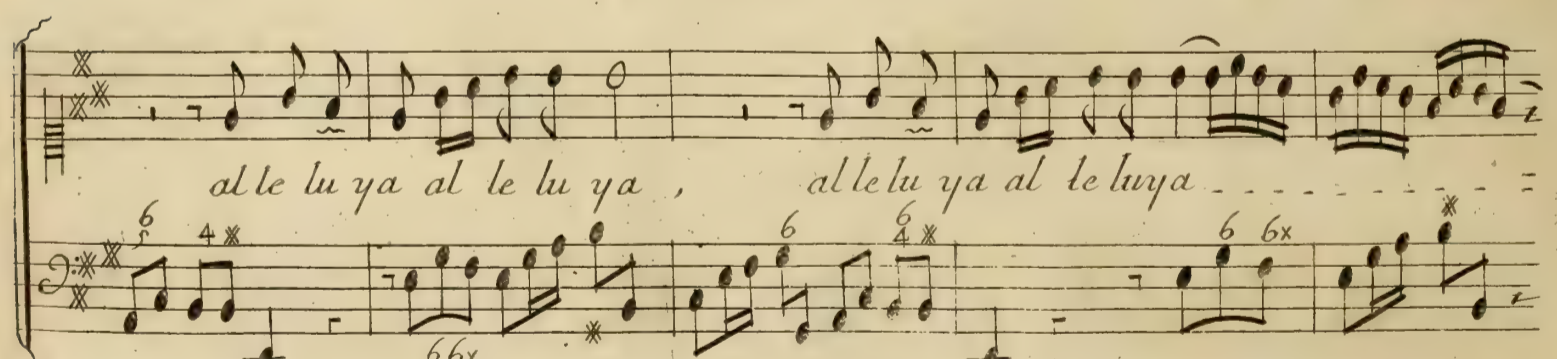 al le lu ya al le lu ya , al le lu ya al le luya - - - - - - - - -
6 5 4 6 6 4 6 6x
6 6x